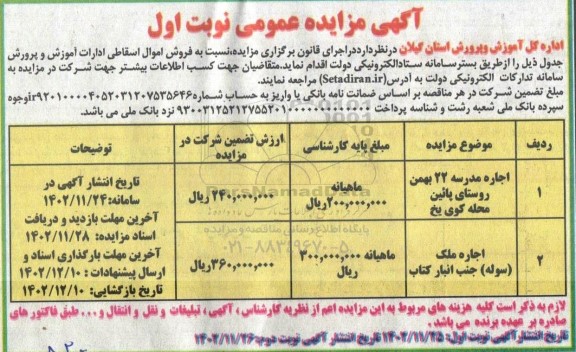 آگهی مزایده عمومی نوبت اول
اداره کل آموزش وپرورش استان گیلان درنظرداردراجرای قانون برگزاری مزایده،نسبت به فروش اموال اسقاطی ادارات آموزش و پرورش
جدول ذیل را ازطریق بسترسامانه ستادالکترونیکی دولت اقدام نماید.متقاضیان جهت کسب اطلاعات بیشتر جهت شرکت در مزایده به
سامانه تدارکات الکترونیکی دولت به آدرس(Setadiran.ir) مراجعه نمایند.
مبلغ تضمین شرکت در هر مناقصه بر اساس ضمانت نامه بانکی یا واریز به حساب شماره
سپرده بانک ملی شعبه رشت و شناسه پرداخت نزد بانک ملی می باشد.
ردیف موضوع مزایده مبلغ پایه کارشناسی ارزش تضمین شرکت در مزایده توضیحات
۱ اجاره مدرسه ۲۲ بهمن روستای پائین محله کوی یخ ماهیانه ۲۰۰,۰۰۰,۰۰۰ریال ۲۴۰,۰۰۰,۰۰۰ ریال
۲ اجاره ملک (سوله) جنب انبار کتاب ماهیانه ۳۰۰,۰۰۰,۰۰۰ ریال ۳۶۰,۰۰۰,۰۰۰ریال
تاریخ انتشار آگهی در
سامانه:۱۴۰۲/۱۱/۲۴
آخرین مهلت بازدید و دریافت
اسناد مزایده: ۱۴۰۲/۱۱/۲۸
آخرین مهلت بارگذاری اسناد و
ارسال پیشنهادات : ۱۴۰۲/۱۲/۱۰
تاریخ بازگشایی: ۱۴۰۲/۱۲/۱۰
ParsNamadData
پایگاه اطلاع رسانی مناقصه و مزایده
۰۲۱-۸۸۳۴۹۶۷۰-۵
لازم به ذکر است کلیه هزینه های مربوط به این مزایده اعم از نظریه کارشناس ، آگهی ، تبلیغات و نقل و انتقال و... طبق فاکتور های
صادره بر عهده برنده می باشد .
تاریخ انتشارآگهی نوبت اول: ۱۴۰۲/۱۱/۲۵ تاریخ انتشار آگهی نوبت دوم:۱۴۰۲/۱۱/۲۶